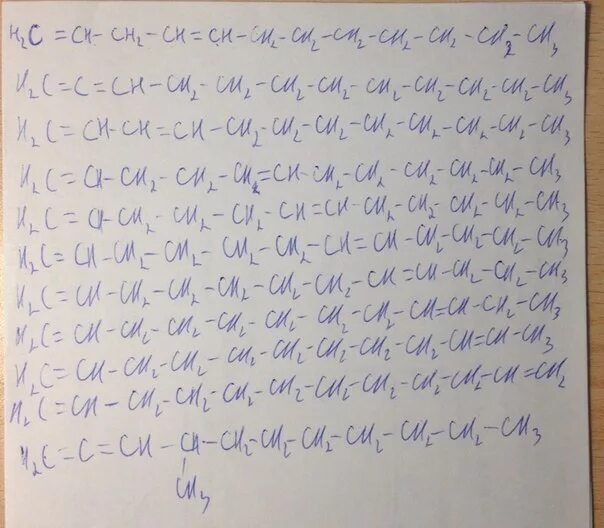 H₂C=CH-CH₂-CH=CH-CH₂-CH₂-CH₂-CH₂-CH₂-CH₂-CH₃
H₂C=C=CH-CH₂-CH₂-CH₂-CH₂-CH₂-CH₂-CH₂-CH₂-CH₃
H₂C=CH-CH=CH-CH₂-CH₂-CH₂-CH₂-CH₂-CH₂-CH₂-CH₃
H₂C=CH-CH₂-CH₂-CH₂=CH-CH₂-CH₂-CH₂-CH₂-CH₂-CH₃
H₂C=CH-CH₂-CH₂-CH₂-CH=CH-CH₂-CH₂-CH₂-CH₂-CH₃
H₂C=CH-CH₂-CH₂-CH₂-CH₂-CH=CH-CH₂-CH₂-CH₂-CH₃
H₂C=CH-CH₂-CH₂-CH₂-CH₂-CH₂-CH=CH-CH₂-CH₂-CH₃
H₂C=CH-CH₂-CH₂-CH₂-CH₂-CH₂-CH₂-CH=CH-CH₂-CH₃
H₂C=CH-CH₂-CH₂-CH₂-CH₂-CH₂-CH₂-CH₂-CH=CH-CH₃
H₂C=CH-CH₂-CH₂-CH₂-CH₂-CH₂-CH₂-CH₂-CH₂-CH=CH₂
H₂C=C=CH-CH-CH₂-CH₂-CH₂-CH₂-CH₂-CH₂-CH₃
CH₃